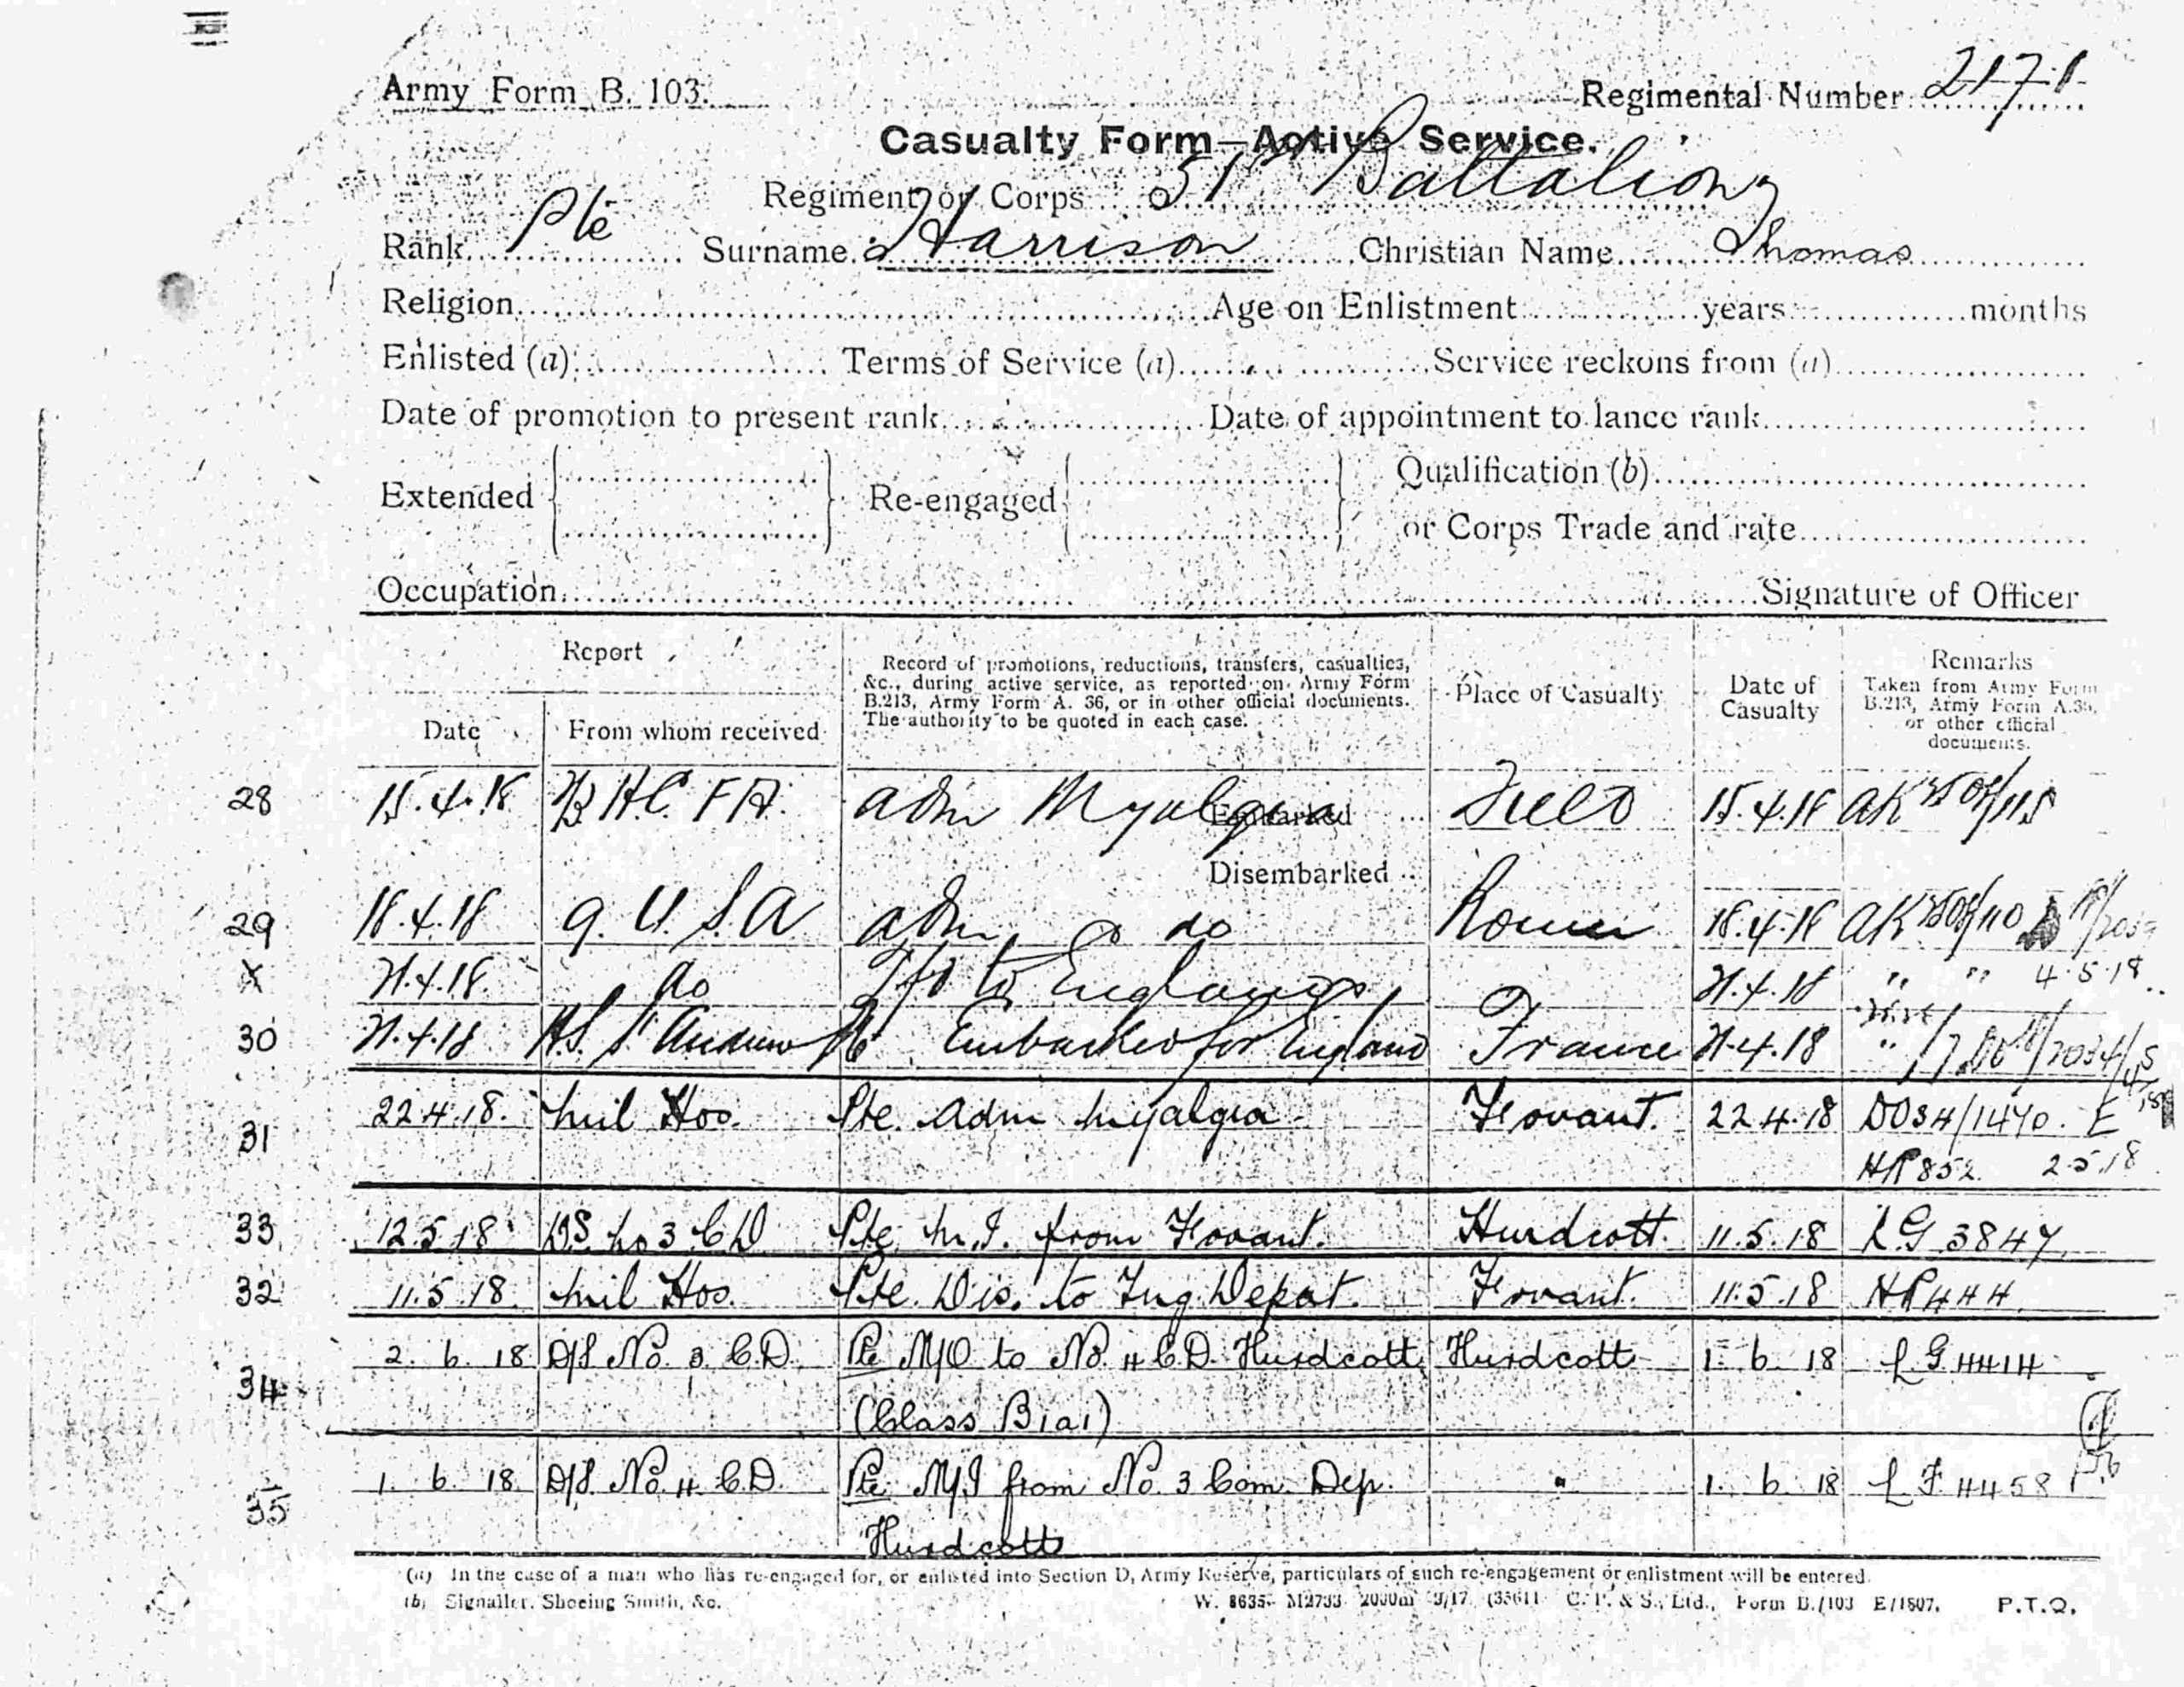 Army Form B. 103.
Regimental Number 2171
Casualty Form—Active Service.
Regiment or Corps 51st Battalion
Rank Pte Surname Harrison Christian Name Thomas
Religion Age on Enlistment years months
Enlisted (a) Terms of Service (a) Service reckons from (a)
Date of promotion to present rank Date of appointment to lance rank
Extended Re-engaged Qualification (b)
or Corps Trade and rate
Occupation Signature of Officer
Report
Date From whom received
Record of promotions, reductions, transfers, casualties,
&c., during active service, as reported on Army Form
B.213, Army Form A. 36, or in other official documents.
The authority to be quoted in each case.
Place of Casualty
Date of
Casualty
Remarks
Taken from Army Form
B.213, Army Form A.36,
or other official
documents.
28 15.4.18 Adm Myalgia Embarked Field 15.4.18
Disembarked
29 18.4.18 9. U.S.A adm do Rouen 18.4.18
X 21.4.18 do to England 21.4.18 " " 4.5.18
30 21.4.18 Embarked for England France 21.4.18
31 22.4.18. Mil Hos. Pte. Adm Myalgia Fovant. 22.4.18 DO34/1470. E
HR852. 2.5.18
33 12.5.18 No 3 C D Pte. M.I. from Fovant. Hurdcott. 11.5.18 L.G 3847
32 11.5.18. Mil Hos. Pte. Dis. to Trg. Depot. Fovant. 11.5.18 HR444.
34 2. 6. 18 No. 3. C.D. Pte M/O to No. 4 C.D. Hurdcott Hurdcott 1. 6. 18 L.G. 4414
(Class B1a1)
35 1. 6. 18. No. 4. C.D. Pte M/I from No. 3 Com. Dep. " 1. 6. 18 4458
Hurdcott
(a) In the case of a man who has re-engaged for, or enlisted into Section D, Army Reserve, particulars of such re-engagement or enlistment will be entered.
(b) Signaller, Shoeing Smith, &c.
W. 8635 M2733 2000m 9/17 C. P. & S., Ltd., Form B./103 E/1807. P.T.O.